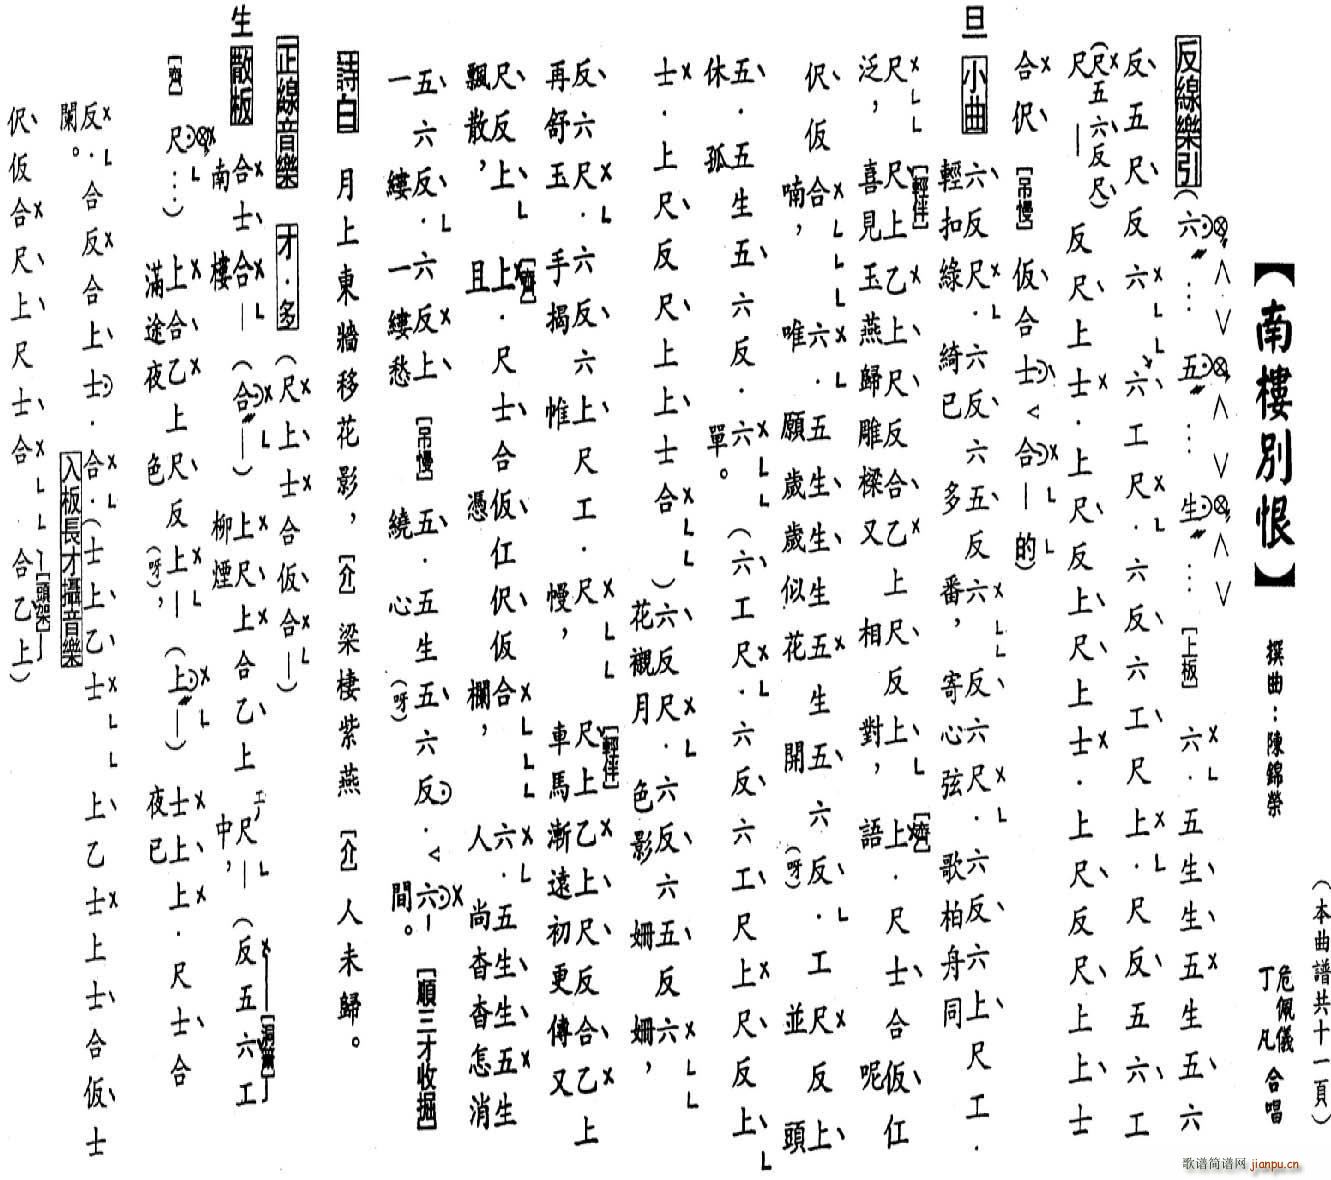 （本曲譜共十一頁）
【南樓別恨】
撰曲：陳錦榮
危佩儀
丁凡 合唱
反線樂引（六…五…生…［上板］六．五生生五生五六
反五尺反六六工尺．六反六工尺上．尺反五六工
尺—反尺上士．上尺反上尺上士．上尺反尺上上士
（尺五六反尺）
合伬［吊慢］仮合士合—的）
旦 小曲 六反尺．六反六五反六反六尺．六反六上尺工．
輕扣綠綺已多番，寄心弦歌柏舟同
尺［輕伴］尺上乙上尺反合乙上尺反上［齊］上．尺士合仮仜
泛，喜見玉燕歸雕樑又相對，語呢
伬仮合六．五生生生五生五六反．工尺反上
喃，唯願歲歲似花開（呀）並頭
五．五生五六反．六（六工尺．六反六工尺上尺反上
休孤單。
士．上尺反尺上上士合）六反尺．六反六五反六
花襯月色影姍姍，
反六尺．六反六上尺工．尺［輕伴］尺上乙上尺反合乙上
再舒玉手揭帷幔，車馬漸遠初更傳又
尺反上［齊］上．尺士合仮仜伬仮合六．五生生五生
飄散，且憑欄，人尚杳杳怎消
五六反．六反上［吊慢］五．五生五六反．六—［順三才收掘］
一縷一縷愁繞心（呀）間。
詩白 月上東牆移花影，［介］梁棲紫燕［介］人未歸。
正線音樂 才．多（尺上士合仮合—）
生 散板 合士合—（合—）上尺上合乙上尺—（反五六工
南樓柳煙中，［洞簫］
［齊］尺…）上合乙上尺反上—（上—）士上上．尺士合
滿途夜色（呀），夜已
反．合反合上士．合．（士上乙士上乙士上士合仮士
闌。入板長才攝音樂
伬仮合尺上尺士合［頭架］合乙上）
歌谱简谱网 jianpu.cn